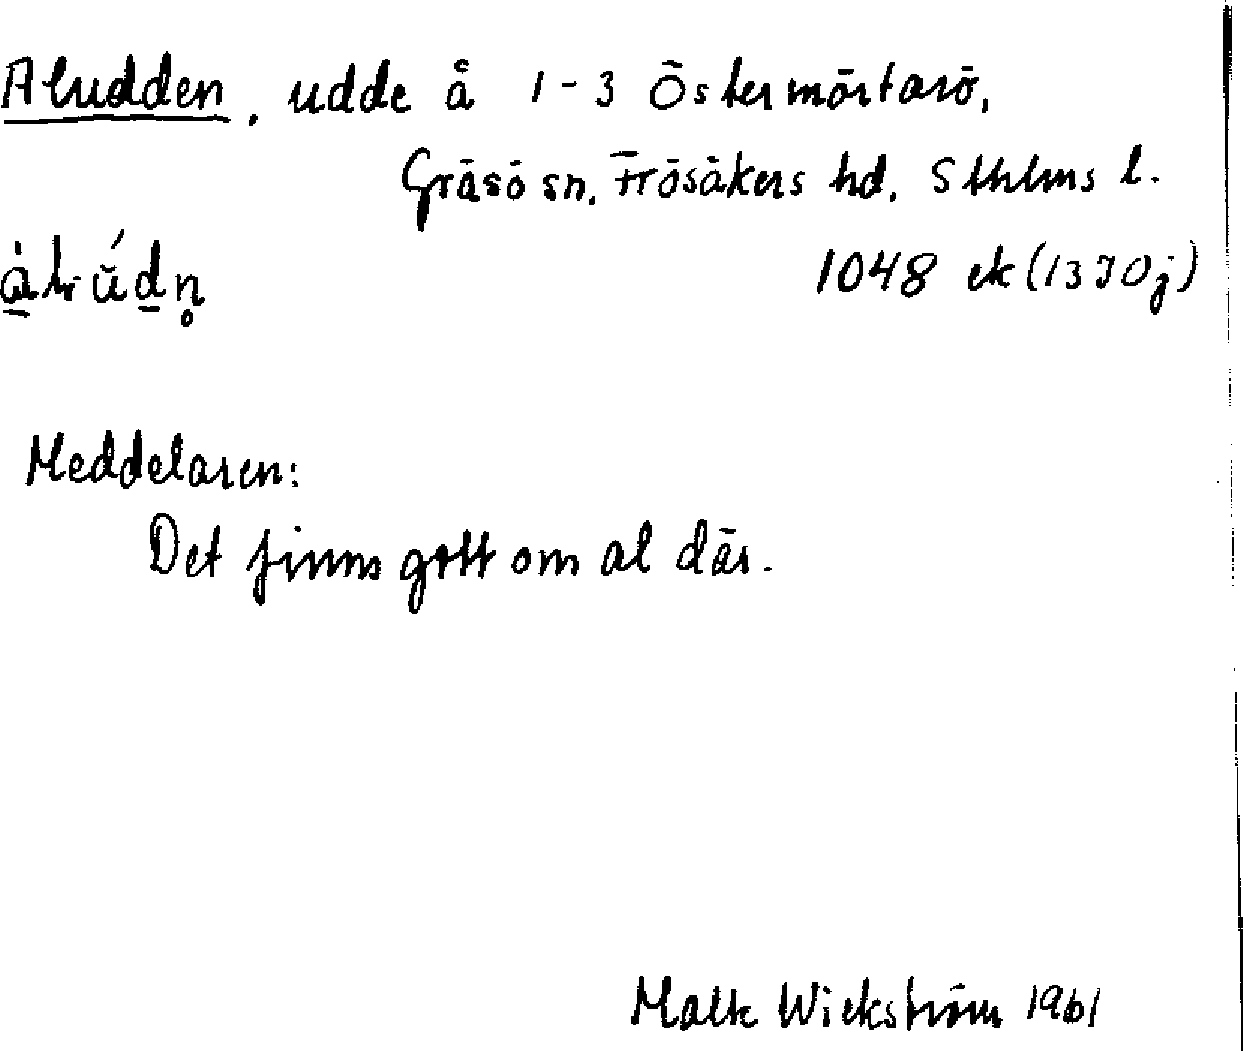 Aludden, udde å 1-3 Östermörtarö,
Gräsö sn, Frösåkers hd, Sthlms l.
1048 ek (13I0j)
Meddelaren:
Det finns gott om al där.
Malte Wickström 1961